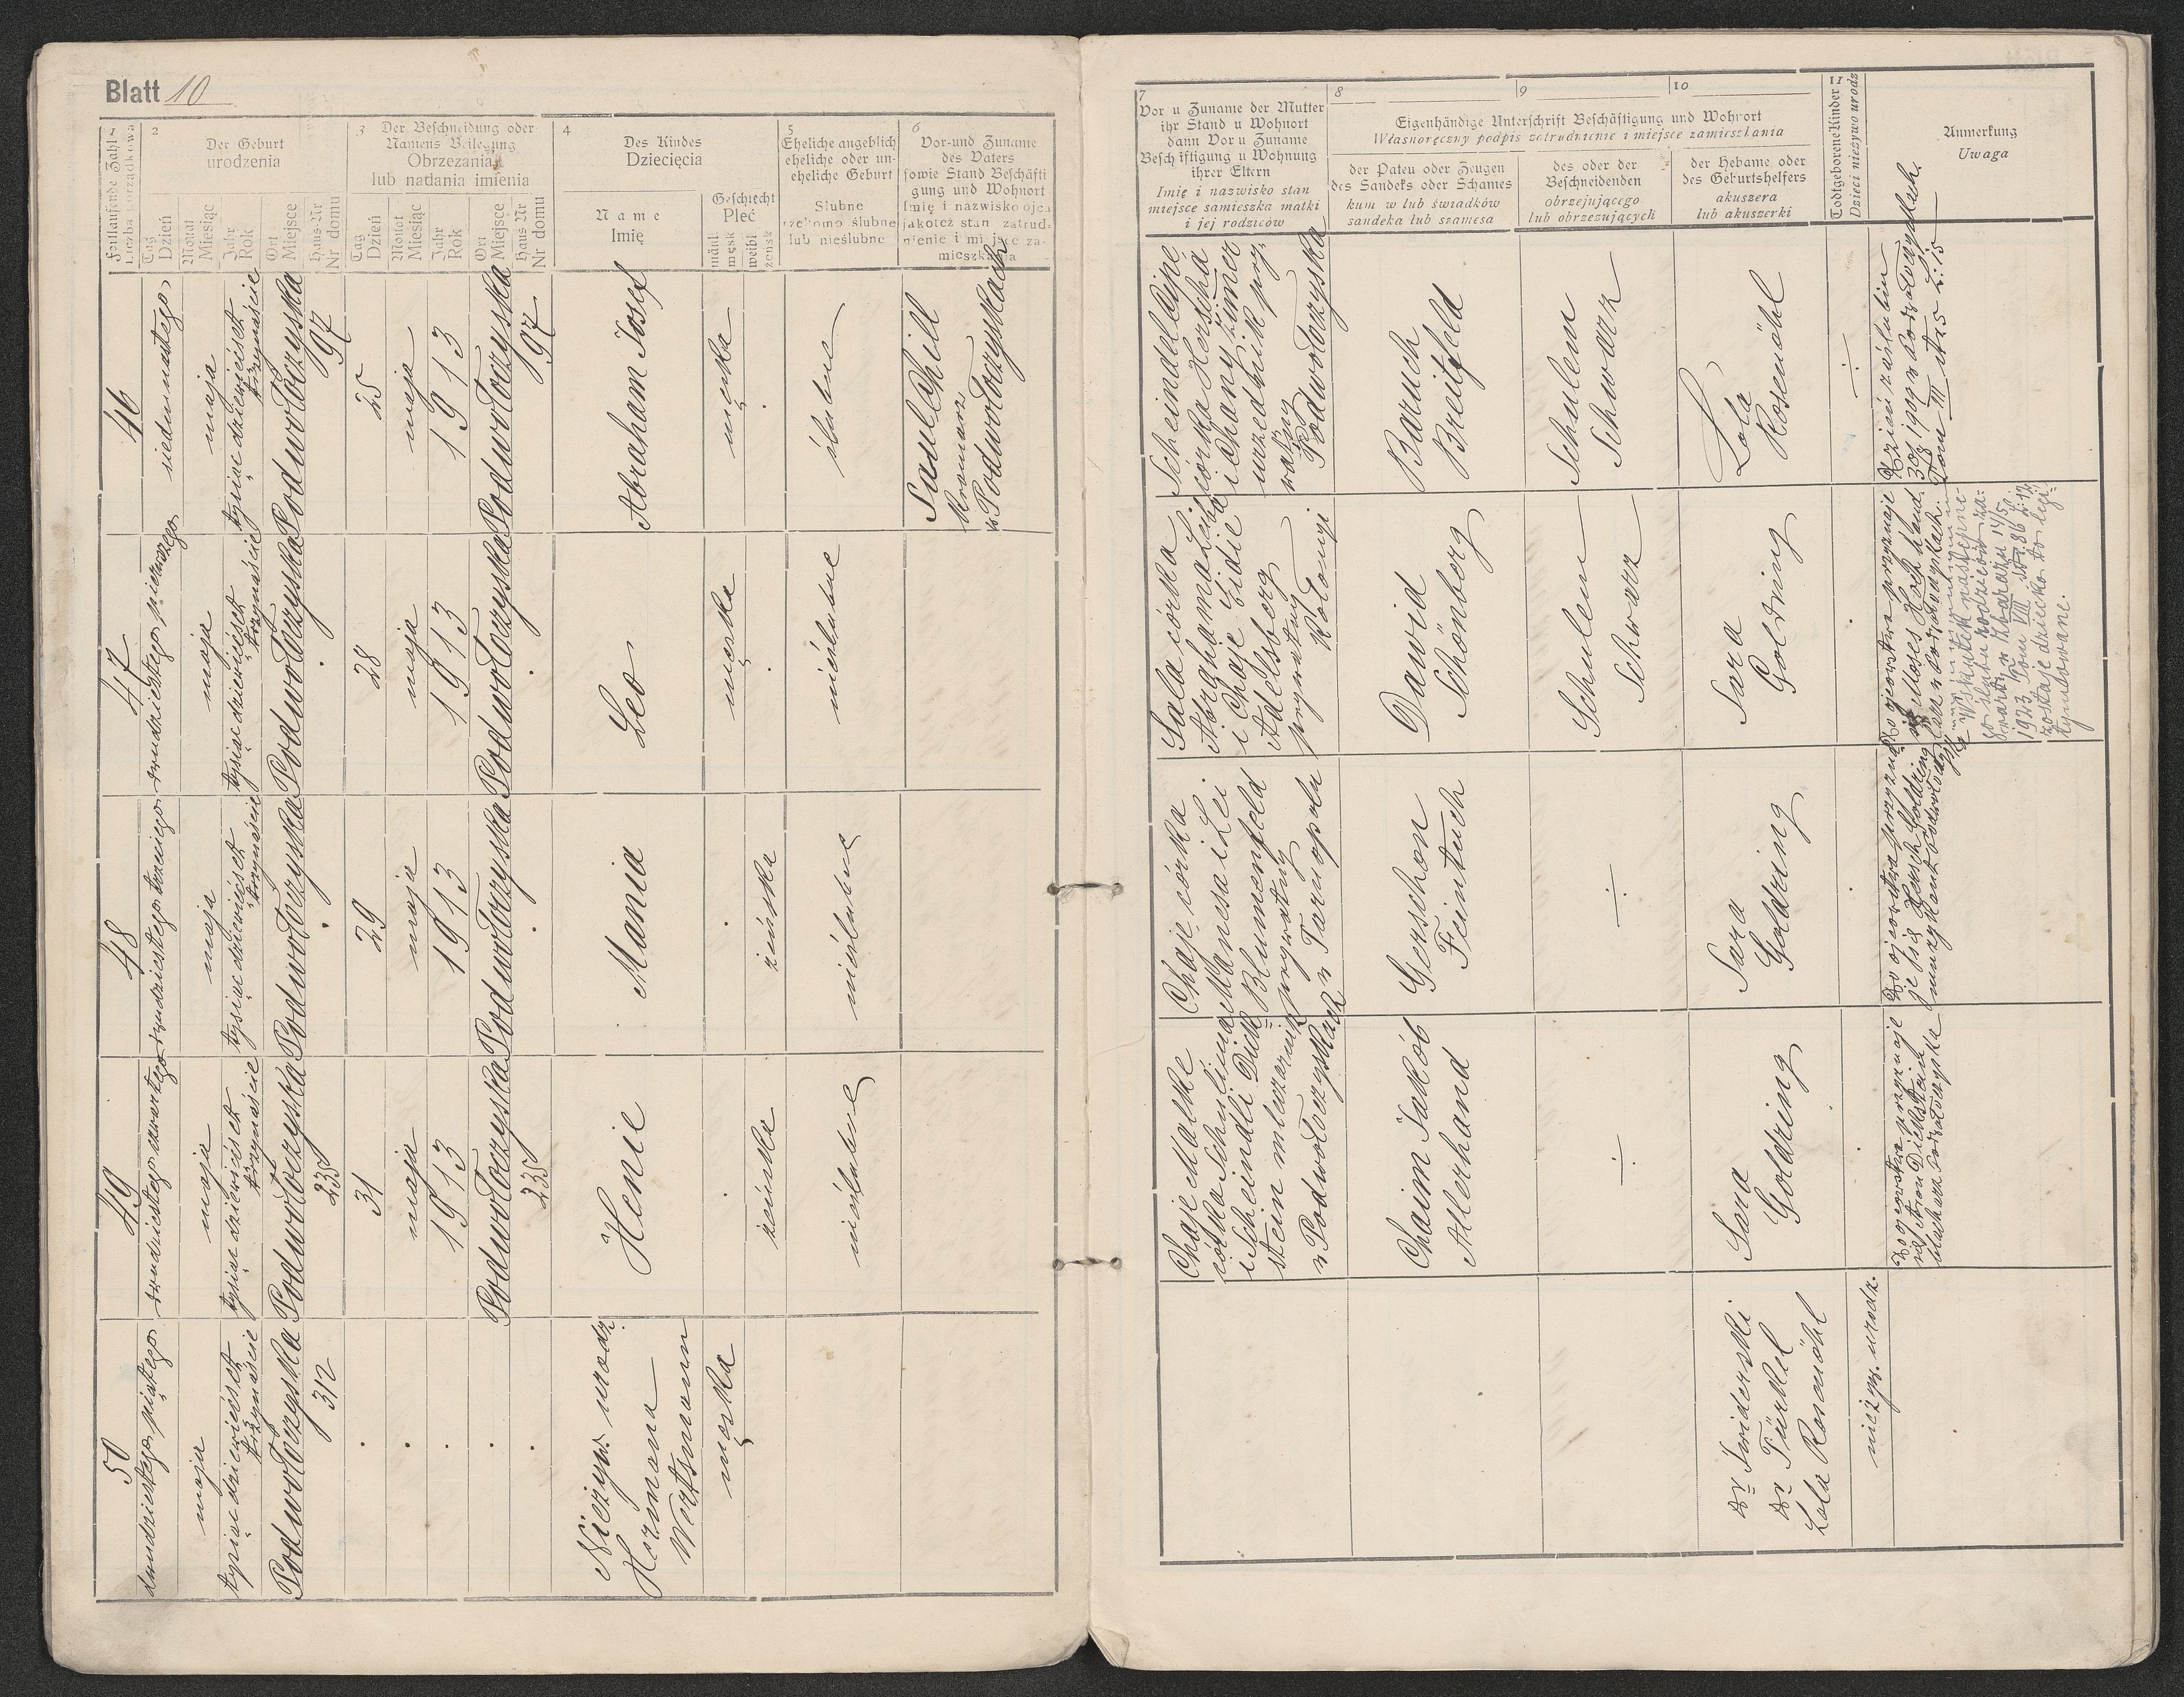 Blatt 10
1
Fortlaufende Zahl
Liczba porządkowa
2
Der Geburt
urodzenia
Tag
Dzień
Monat
Miesiąc
Jahr
Rok
Ort
Miejsce
Haus-Nr
Nr domu
3
Der Beschneidung oder
Namens Beilegung
Obrzezania
lub nadania imienia
Tag
Dzień
Monat
Miesiąc
Jahr
Rok
Ort
Miejsce
Haus-Nr
Nr domu
4
Des Kindes
Dziecięcia
Name
Imię
Geschlecht
Płeć
männl
męsk
weibl
żeńsk
5
Eheliche angeblich
eheliche oder un-
eheliche Geburt
Ślubne
rzekomo ślubne
lub nieślubne
6
Vor-und Zuname
des Vaters
sowie Stand Beschäfti
gung und Wohnort
Imię i nazwisko ojca
jakoteż stan zatrud-
nienie i miejsce za-
mieszkania
46
siedemnastego
maja
tysiąc dziewięćset
trzynaście
Podwołoczyska
197
25
maja
1913
Podwołoczyska
197
Abraham Josef
męska
ślubne
Saul Chill
kramarz
w Podwołoczyskach
47
dwudziestego pierwszego
maja
tysiąc dziewięćset
trzynaście
Podwołoczyska
28
maja
1913
Podwołoczyska
Leo
męska
nieślubne
48
dwudziestego trzeciego
maja
tysiąc dziewięćset
trzynaście
Podwołoczyska
29
maja
1913
Podwołoczyska
Mania
żeńska
nieślubne
49
dwudziestego czwartego
maja
tysiąc dziewięćset
trzynaście
Podwołoczyska
235
31
maja
1913
Podwołoczyska
235
Henie
żeńska
nieślubne
50
dwudziestego piątego
maja
tysiąc dziewięćset
trzynaście
Podwołoczyska
312
Nieżyw. urodz.
Hermana
Wortsmann
męska
7
Vor u Zuname der Mutter
ihr Stand u Wohnort
dann Vor u Zuname
Beschäftigung u Wohnung
ihrer Eltern
Imię i nazwisko stan
miejsce samieszka matki
i jej rodziców
8
9
10
Eigenhändige Unterschrift Beschäftigung und Wohnort
Własnoręczny podpis zatrudnienie i miejsce zamieszkania
der Paten oder Zeugen
des Sandeks oder Schames
kum w lub świadków
sandeka lub szamesa
des oder der
Beschneidenden
obrzejującego
lub obrzezujących
der Hebame oder
des Geburtshelfers
akuszera
lub akuszerki
11
Todtgeborene Kinder
Dzieci nieżywo urodz
Anmerkung
Uwaga
Scheindel Lipe
córka Herscha
i Chany Zimer
urzędnik pry-
watny
Podwołoczyska
Baruch
Breitfeld
Schulem
Schwarz
Lola
Rosenöhl
÷
Rodzice zaślubieni
30/8 1909 w Podwołoczyskach
Tom III str 5 L: 15
Sala córka
Abrahama Leiba
i Chaje Eidie
Adelsberg
prywatny
Kołomyi
Dawid
Schönberg
Schulem
Schwarz
Sara
Goldring
Do ojcowstwa przyznaje
się Moses Hochhand.
larz w Podwołoczyskach.
Wskutek następne-
go ślubu rodziców za-
wart. w Zbarażu 14/5
1923 Tom VIII str 86 L: 12
zostaje dziecko to legi-
tymowane.
Chaje córka
Manesa i Lei
Blumenfeld
prywatny
w Tarnopolu
Gerschon
Feintuch
÷
Sara
Goldring
Do ojcowstwa przyzna-
je się Hersch Goldring
muzykant Podwołoczyska
Chaje Malke
córka Schulima
i Scheindli Dick
stein mleczarnik
w Podwołoczyskach
Chaim Jakób
Allerhand
÷
Sara
Goldring
Do ojcowstwa przyznaje
się Aron Dickstein
blacharz Podwołoczyska
dr Świderski
dr Türkel
Lola Rosenöhl
nieżyw. urodz.